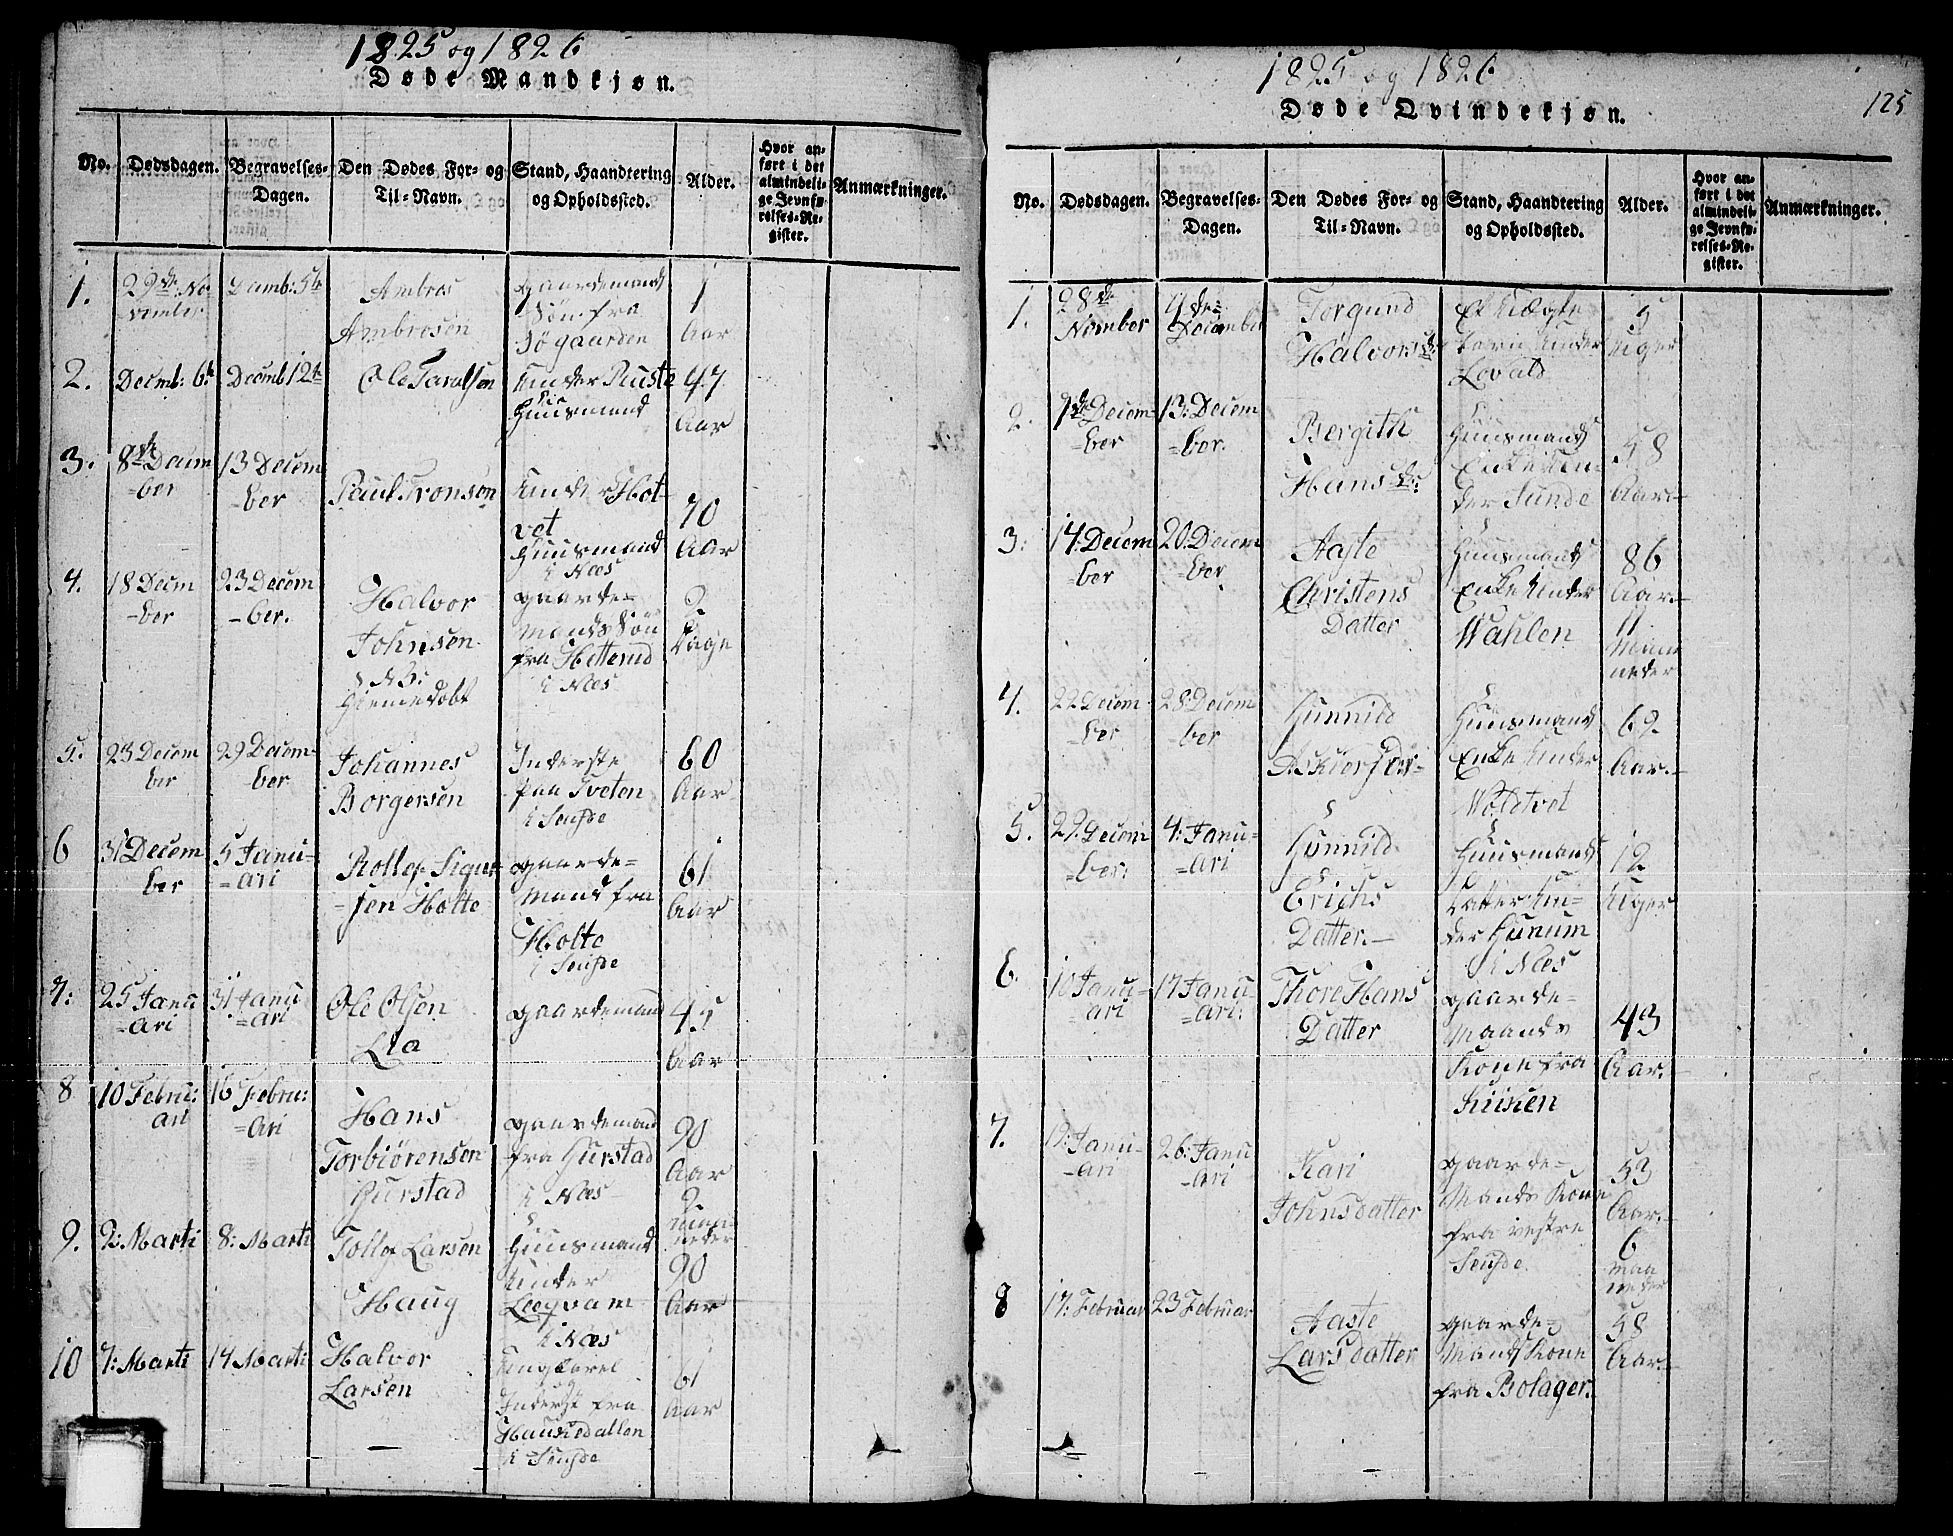 1825 og 1826
Døde Mandkjøn.
No.
Dødsdagen.
Begravelses-
Dagen.
Den Dødes For- og
Til-Navn.
Stand, Haandtering
og Opholdssted.
Alder.
Hvor an-
ført i det
almindeli-
ge Jevnfø-
relses-Re-
gister.
Anmærkninger.
1.
29de No
vember
Decemb: 5te
Ambros
Ambrosen
gaardemands
Søn fra
Søgaarden
1
Aar
2.
Decmb: 6te
Decmb 12te
Ole Taralsen
under Ruste
Huusmand
47
Aar
3.
8de Decem
-ber
13 Decem
-ber
Paul Tronsen
under Hot-
vet
Huusmand
i Næs
70
Aar
4.
18 Decem
-ber
23 Decem
-ber.
Halvor
Johnsen
NB:
Hiemedøbt
gaarde-
Mands Søn
fra Hetterud
i Næs
2
Dage
5.
23 Decem
ber
29 Decem-
-ber
Johannes
Borgersen
Inderste
paa Tveten
i Seufde
60
Aar
6
31 Decem
ber
5 Janu-
-ari
Rollef Sigur-
-sen Holte
gaarde-
Mand fra
Holte
i Seufde
61
Aar
7:
25 Janu
-ari
31 Janu
-ari
Ole Olsen
Lia
gaardemand
45
Aar
8
10 Febru:
ari
16 Febru:
-ari
Hans
Torbiörensen
Hurstad
gaardemand
fra Hurstad
i Næs
90
Aar
2
maa-
neder
9.
2: Marti
8: Marti
Tollef Larsen
Haug
Huusmand
under
Leeqvam
i Næs
90
Aar
10
7: Marti
14 Marti
Halvor
Larsen
Ungkarel
Inderst fra
Haukedallen
i Seufde
61
Aar
1825 og 1826
Døde Qvindekjøn.
125
No.
Dødsdagen.
Begravelses-
Dagen.
Den Dødes For- og
Til-Navn.
Stand, Haandtering
og Opholdssted.
Alder.
Hvor an-
ført i det
almindeli-
ge Jevnfø-
relses-Re-
gister.
Anmærkninger.
1.
28de
Nomber
4de
Decamber
Torgund
Halvorsdr:
Et Uægte
barn under
Lovald
5
Uiger
2.
7de Decem
-ber
13: Decem
-ber.
Bergith
Hansdr:
Huusmands
Enke un-
der Sunde
58
Aar
3:
14: Decem
-ber
20: Decem
-ber
Aaste
Christens
Datter
Huusmands
Enke under
Wahlen
86
Aar
11
Maa
neder
4.
22 Decem
-ber
28 Decem
-ber
Gunnild
Huusmands
Enke under
Woldtvet
69
Aar.
5.
29: Decem
-ber:
4: Janu-
-ari
Gunnild
Erichs
Datter.
Huusmands
Datter un-
der Hunum
i Næs
12
Uiger
6.
10 Janu-
ari
17 Janu
-ari:
Thore Hans
Datter
gaarde-
Maands
Kone fra
43
Aar.
7.
19: Janu-
-ari
26: Janu
-ari
Kari
Johnsdatter
gaarde-
Mands Kone
fra vestre
Seufde
53
Aar.
6
maa
neder
8
17: Februar
23 Februar
Aaste
Larsdatter
gaarde-
Mands Kone
fra Bolager.
58
Aar.